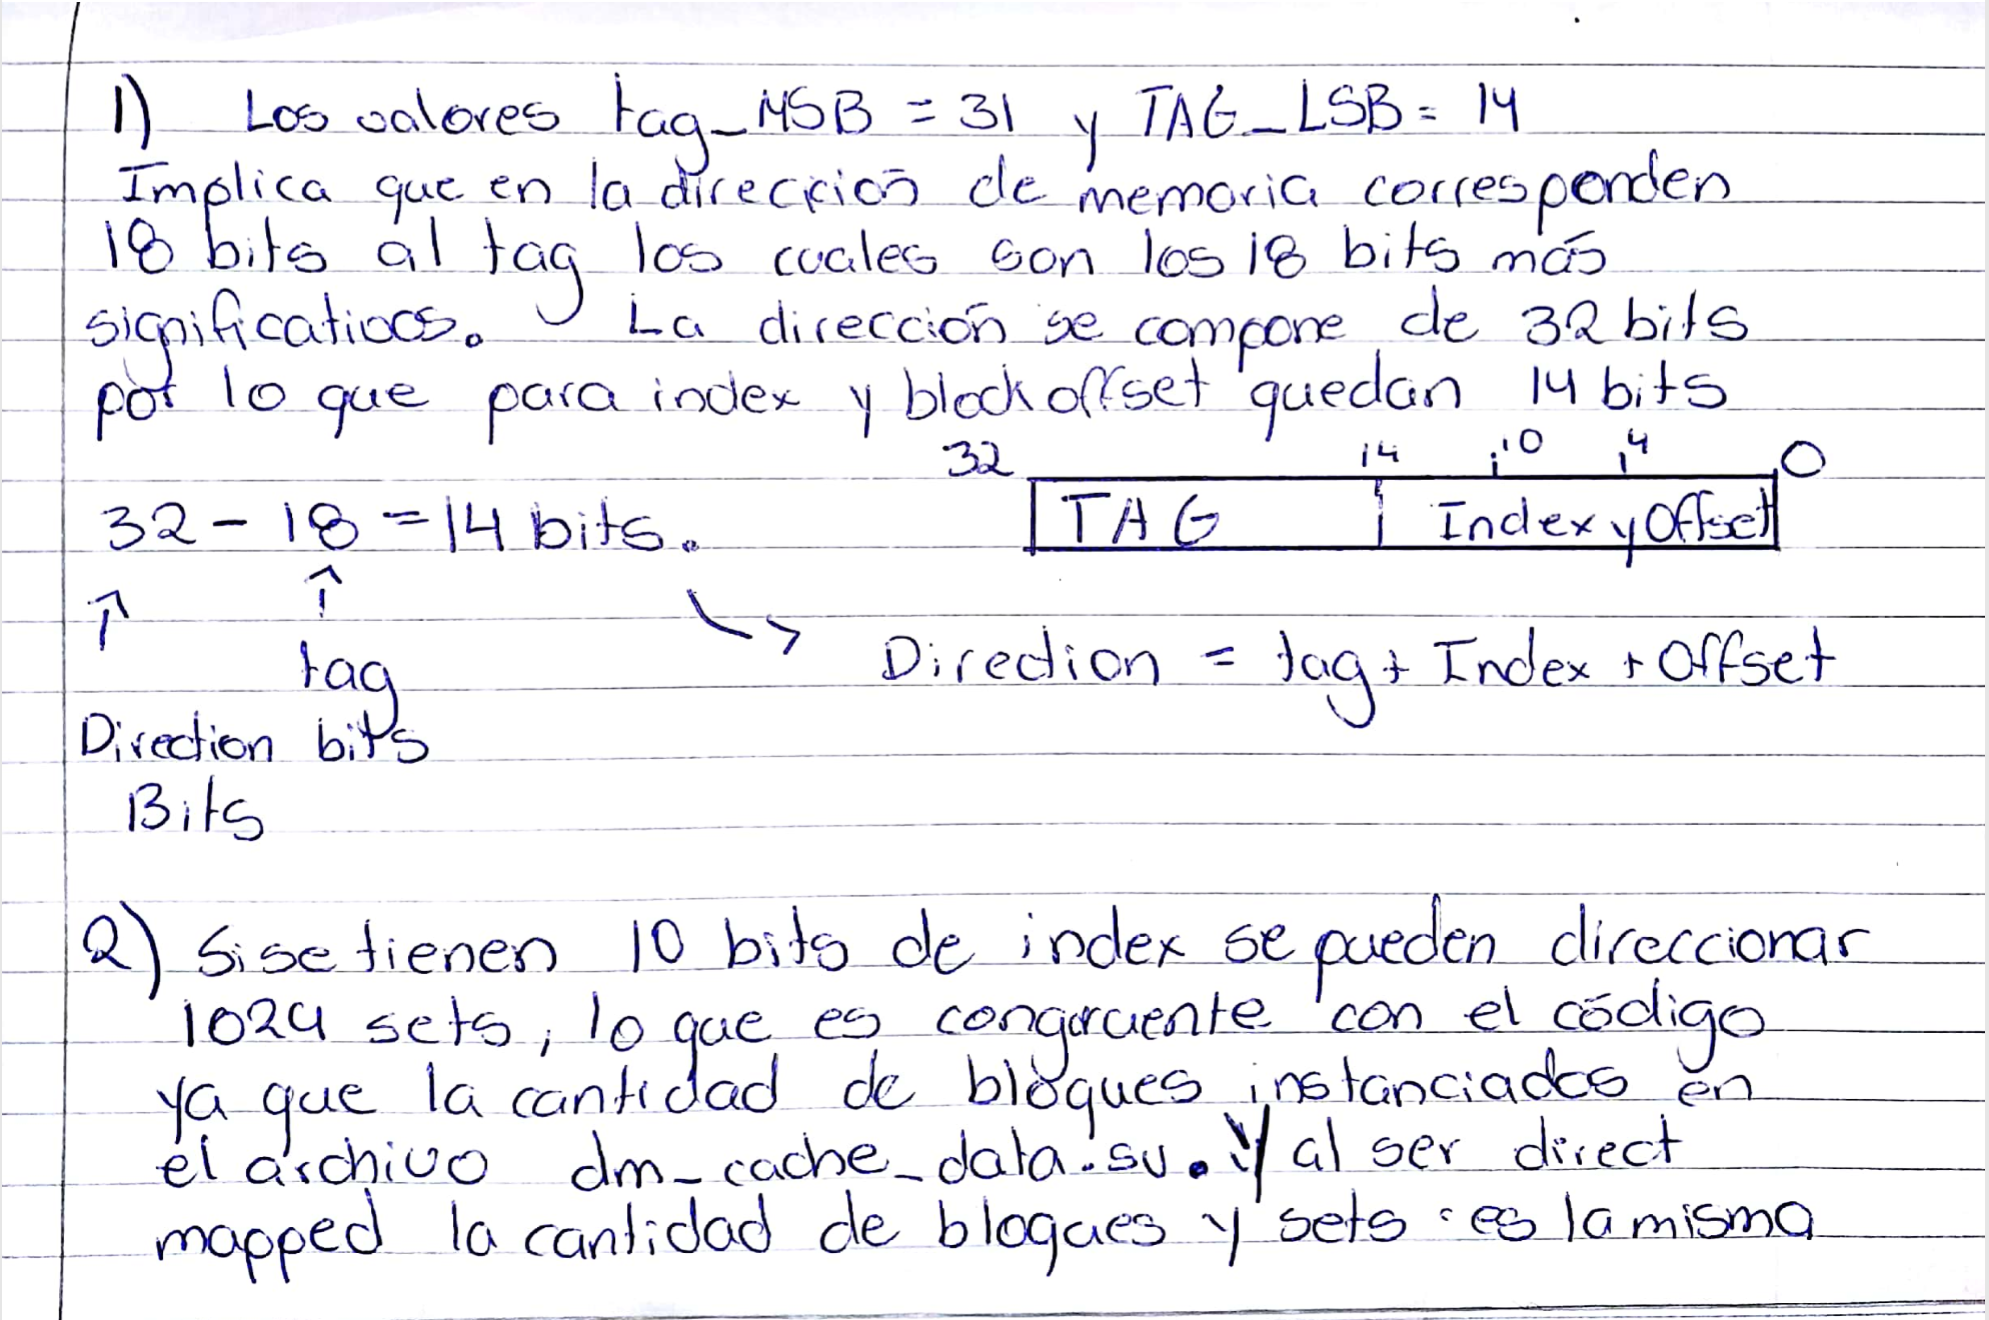 1) Los valores tag_MSB = 31 y TAG_LSB = 14
Implica que en la dirección de memoria corresponden
18 bits al tag los cuales son los 18 bits más
significativos. La dirección se compone de 32 bits
por lo que para index y block offset quedan 14 bits
32 14 10 4 0
TAG Index y Offset
32 - 18 = 14 bits.
tag
Direction = tag + Index + Offset
Direction bits
Bits
2) Si se tienen 10 bits de index se pueden direccionar
1024 sets, lo que es congruente con el código
ya que la cantidad de bloques instanciados en
el archivo dm_cache_data.sv. Y al ser direct
mapped la cantidad de bloques y sets es la misma